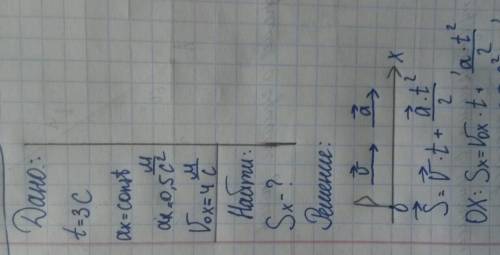 Дано:
t=3c
ax=const
ax=0,5 м/с²
V₀x=4 м/с
Найти:
Sx-?
Решение:
v⃗ a⃗
0 x
S⃗=v⃗·t+a⃗·t²/2
OX: Sx=V₀x·t+a·t²/2